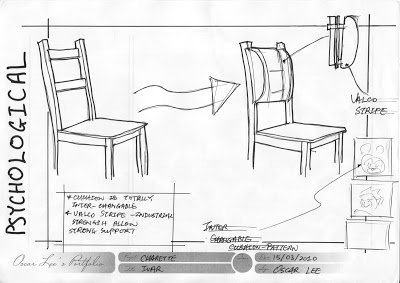 PSYCHOLOGICAL
VALCO
STRIPE
* CUSHION IS TOTALLY
INTER-CHANGABLE
* VALCO STRIPE -INDUSTRIAL
STRENGTH ALLOW
STRONG SUPPORT
INTER
CHANGABLE
CUSHION-PATTERN
Oscar Lee's Portfolio
CHARETTE
IVAR
Date 15/03/2010
OSCAR LEE